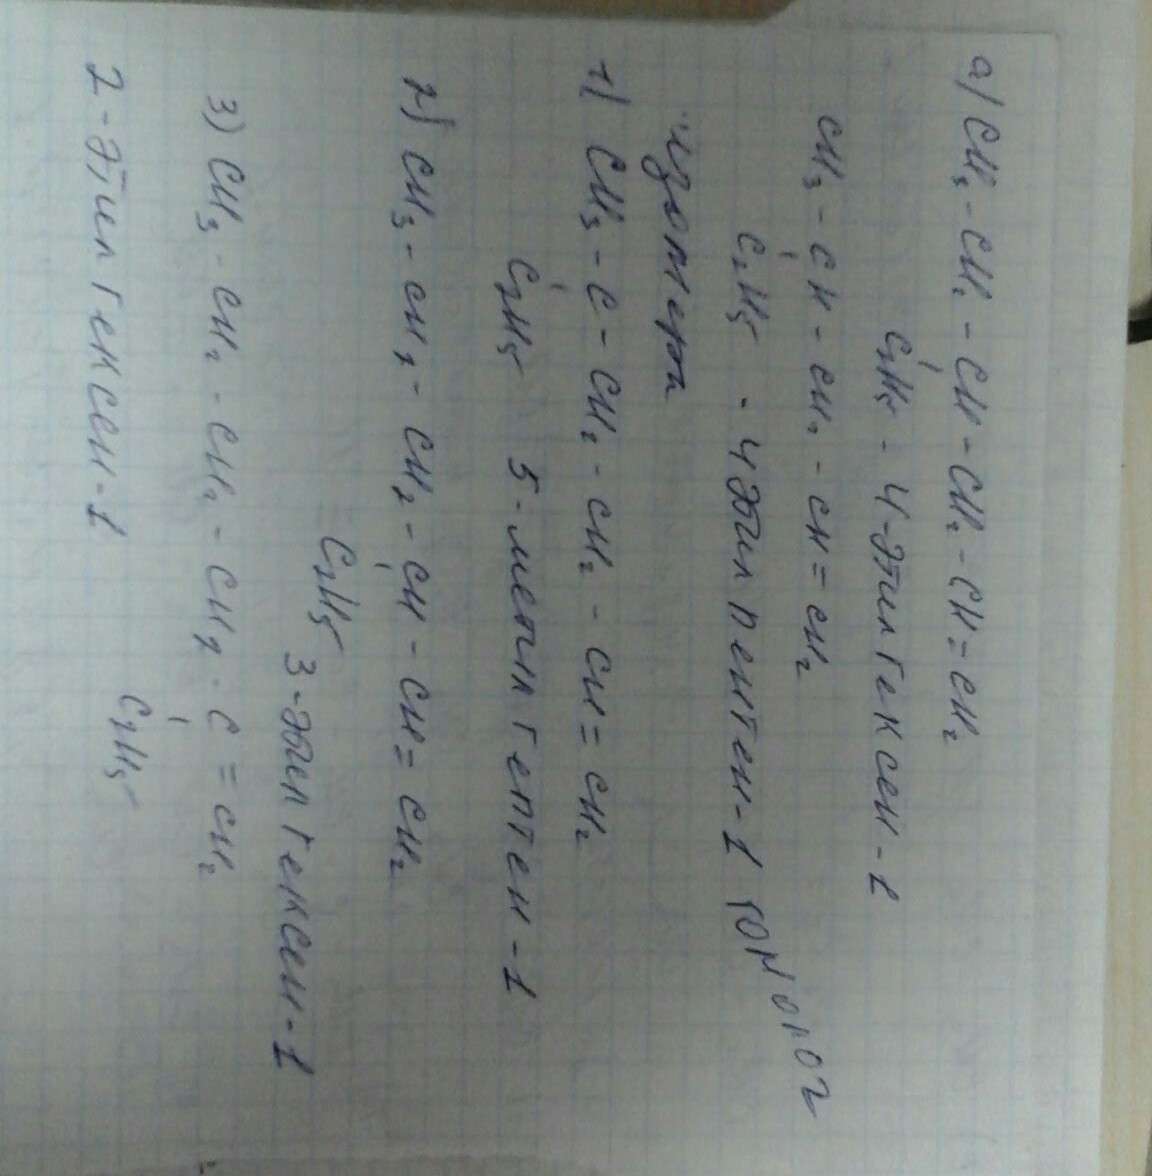 а) CH₃ - CH₂ - CH - CH₂ - CH = CH₂
C₂H₅ - 4-этил гексен - 1
CH₃ - CH - CH₂ - CH = CH₂
C₂H₅ - 4 этил пентен - 1 гомолог
изомеры
1) CH₃ - C - CH₂ - CH₂ - CH = CH₂
C₂H₅ 5-метил гептен - 1
2) CH₃ - CH₂ - CH₂ - CH - CH = CH₂
C₂H₅
3-этил гексен - 1
3) CH₃ - CH₂ - CH₂ - CH₂ - C = CH₂
C₂H₅
2-этил гексен - 1